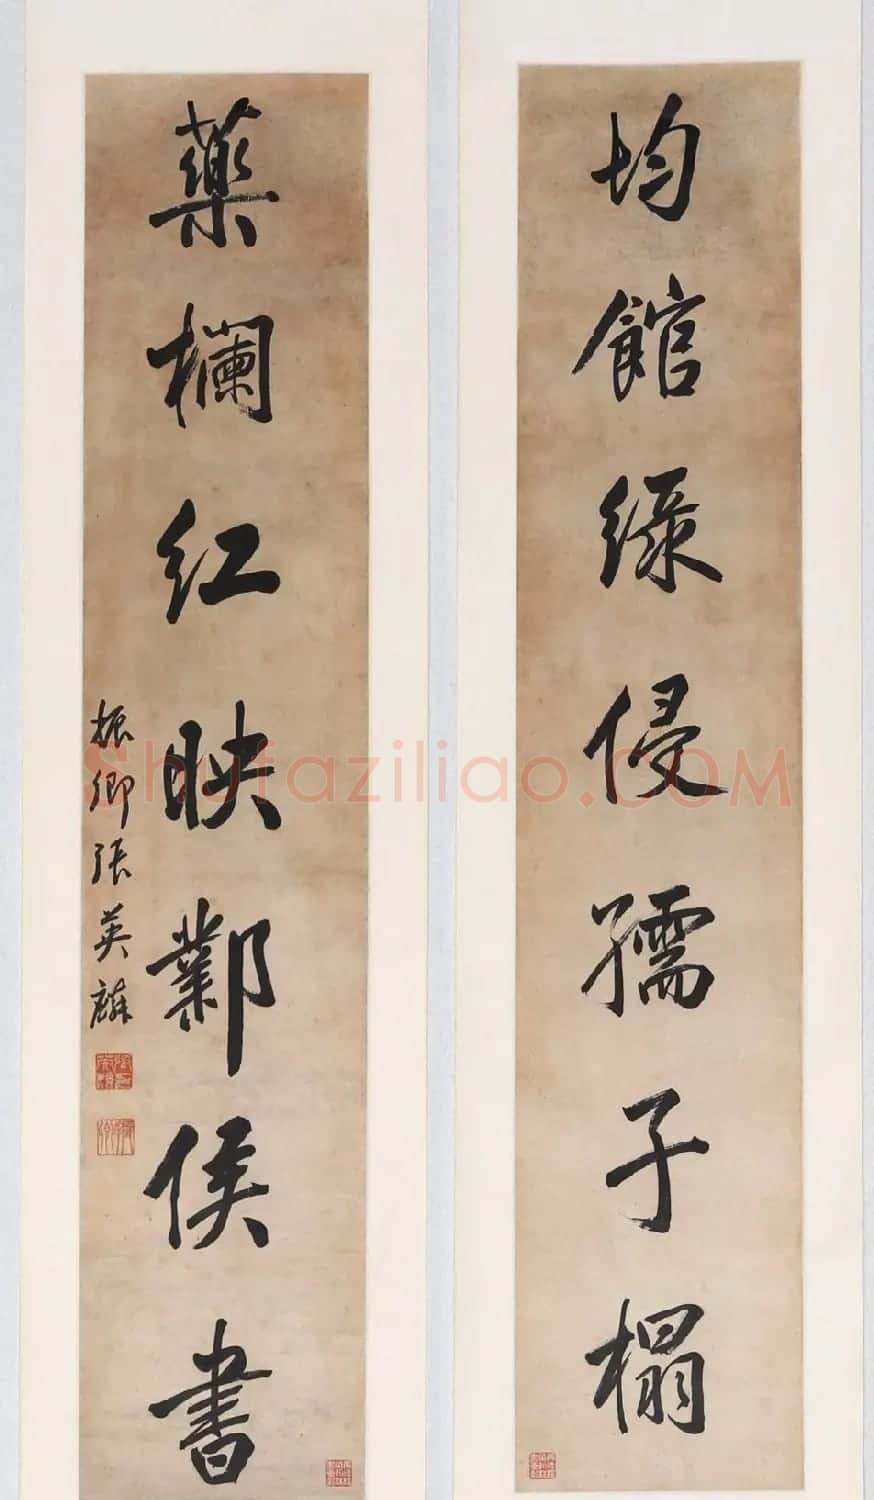 均館綠侵孺子榻
藥欄紅映鄴侯書
振卿張英麟
Shufaziliao.COM